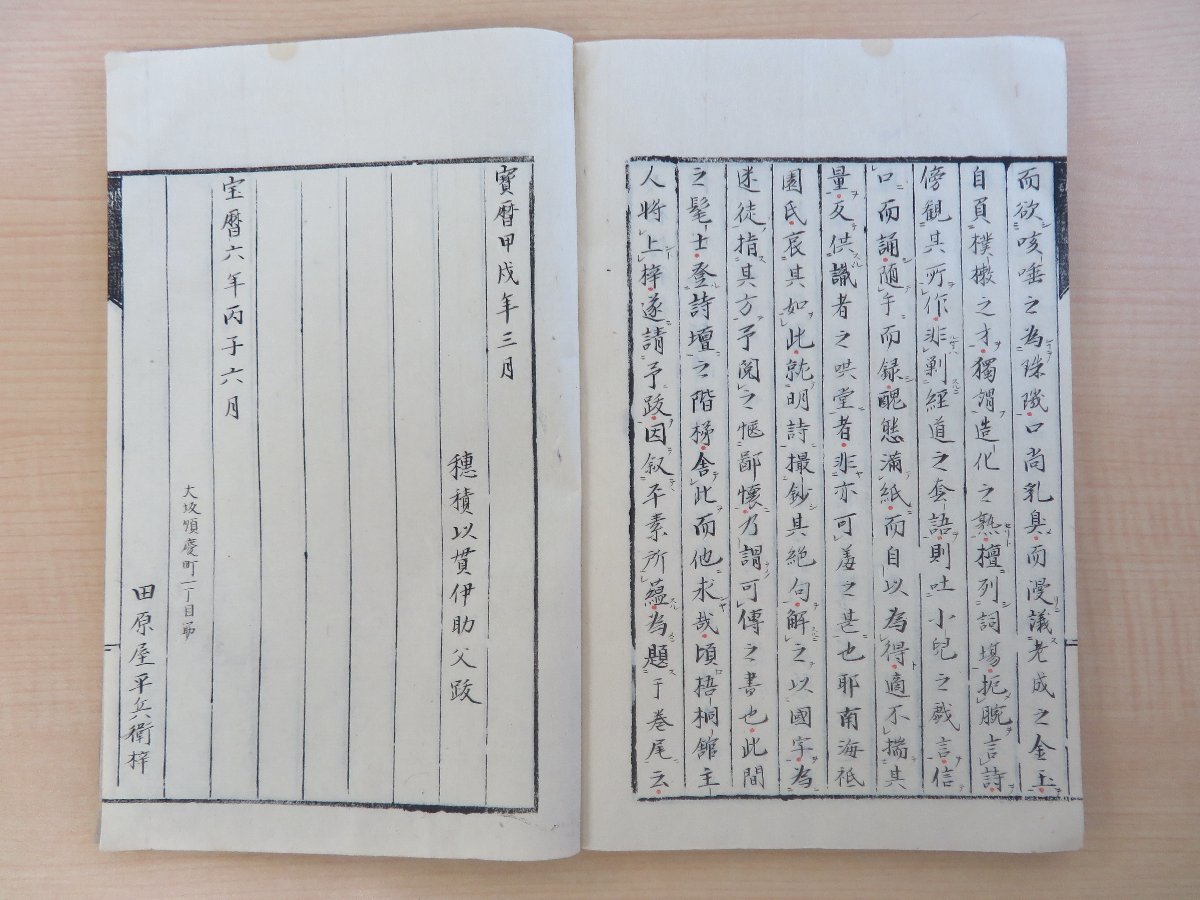 而欲咳唾之為珠璣口尚乳臭而漫議老成之金玉
自負樸樕之才獨謂造化之熟擅列詞場扼腕言詩
傍観其所作非剿經道之套語則吐小兒之戯言信
口而誦随手而録醜態満紙而自以為得適不揣其
量反供識者之哄堂者非亦可羞之甚也耶南海祗
園氏哀其如此就明詩撮鈔其絶句解之以國字為
迷徒指其方予閲之愜鄙懐乃謂可傳之書也此間
之髦士登詩壇之階梯舎此而他求哉頃梧桐館主
人将上梓遂請予跋因叙平素所蘊為題于巻尾云
寶暦甲戌年三月
穗積以貫伊助父跋
宝暦六年丙子六月
大坂順慶町一丁目筋
田原屋平兵衛梓